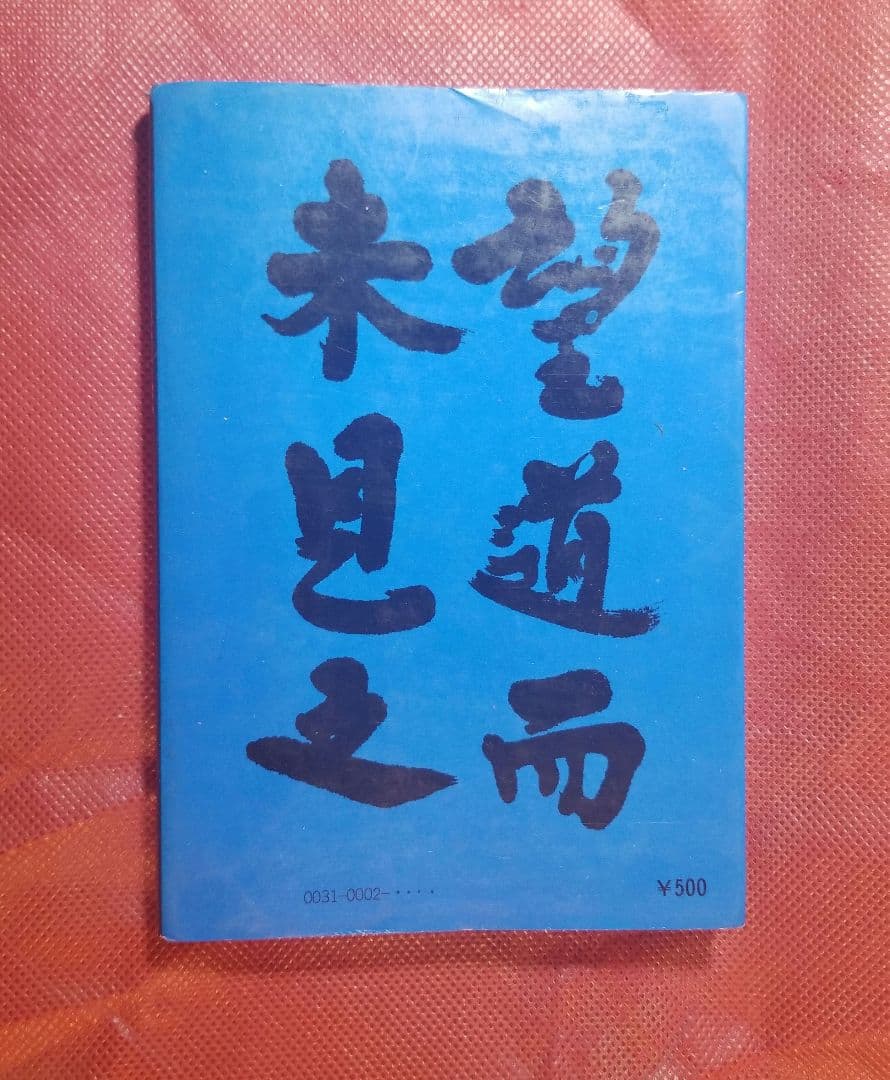 望道而
未見之
0031-0002-・・・・
¥500